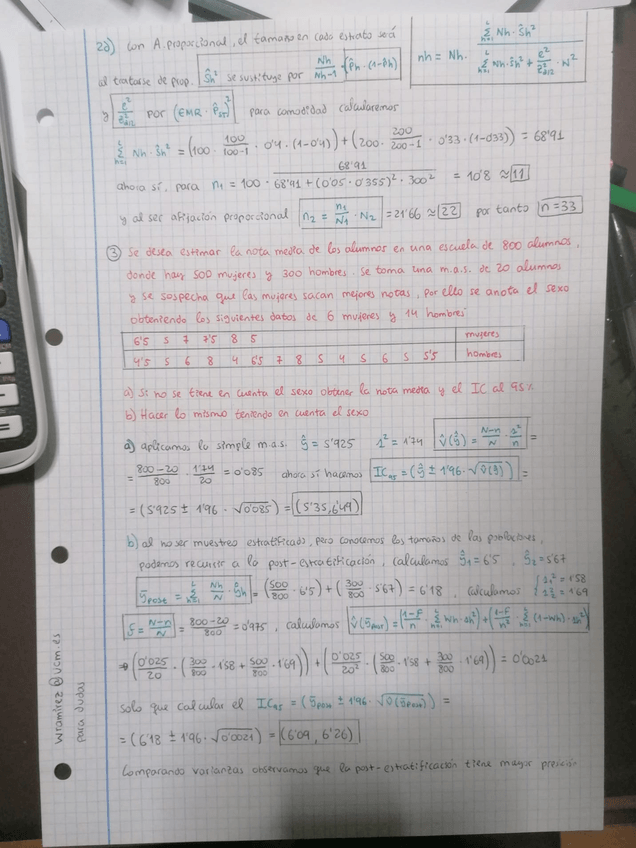 2d) Con A. proporcional, el tamaño en cada estrato será
al tratarse de prop. Ŝh² se sustituye por Nh/(Nh-1) · (p̂h · (1-p̂h))
nh = Nh · (Σ_{h=1}^{L} Nh · Ŝh²) / (Σ_{h=1}^{L} Nh · Ŝh² + e²/z²_{α/2} · N²)
y e²/z²_{α/2} por (EMR · P̂ST)² para comodidad calcularemos
Σ_{h=1}^{L} Nh · Ŝh² = (100 · 100/(100-1) · 0'4 · (1-0'4)) + (200 · 200/(200-1) · 0'33 · (1-0'33)) = 68'91
ahora sí, para n₁ = 100 · 68'91/(68'91 + (0'05 · 0'355)² · 300²) = 10'8 ≈ 11
y al ser afijación proporcional n₂ = n₁/N₁ · N₂ = 21'66 ≈ 22 por tanto n = 33
③ Se desea estimar la nota media de los alumnos en una escuela de 800 alumnos,
donde hay 500 mujeres y 300 hombres. Se toma una m.a.s. de 20 alumnos
y se sospecha que las mujeres sacan mejores notas, por ello se anota el sexo
obteniendo los siguientes datos de 6 mujeres y 14 hombres:
6'5 5 7 7'5 8 5 mujeres
4'5 5 6 8 4 6'5 7 8 5 4 5 6 5 5'5 hombres
a) Si no se tiene en cuenta el sexo obtener la nota media y el IC al 95%
b) Hacer lo mismo teniendo en cuenta el sexo
a) aplicamos la simple m.a.s. ŷ = 5'925 s² = 1'74 V̂(ŷ) = (N-n)/N · s²/n =
= (800-20)/800 · 1'74/20 = 0'085 ahora sí hacemos IC₉₅ = (ŷ ± 1'96 · √V̂(ŷ)) =
= (5'925 ± 1'96 · √0'085) = (5'35, 6'49)
b) al no ser muestreo estratificado, pero conocemos los tamaños de las poblaciones,
podemos recurrir a la post-estratificación, calculamos ŷ₁ = 6'5, ŷ₂ = 5'67
ȳpost = Σ_{h=1}^{L} Nh/N · ŷh = (500/800 · 6'5) + (300/800 · 5'67) = 6'18, calculamos { s₁² = 1'58 s₂² = 1'69
f = (N-n)/N = (800-20)/800 = 0'975, calculamos V̂(ȳpost) = (1-f)/n · Σ_{h=1}^{L} Wh · sh²) + (1-f)/n² · Σ_{h=1}^{L} (1-Wh) · sh²)
→ (0'025/20 · (300/800 · 1'58 + 500/800 · 1'69)) + (0'025/20² · (500/800 · 1'58 + 300/800 · 1'69)) = 0'0021
solo que calcular el IC₉₅ = (ȳpost ± 1'96 · √V̂(ȳpost)) =
= (6'18 ± 1'96 · √0'0021) = (6'09, 6'26)
Comparando varianzas observamos que la post-estratificación tiene mayor presición
wramirez@ucm.es
para dudas